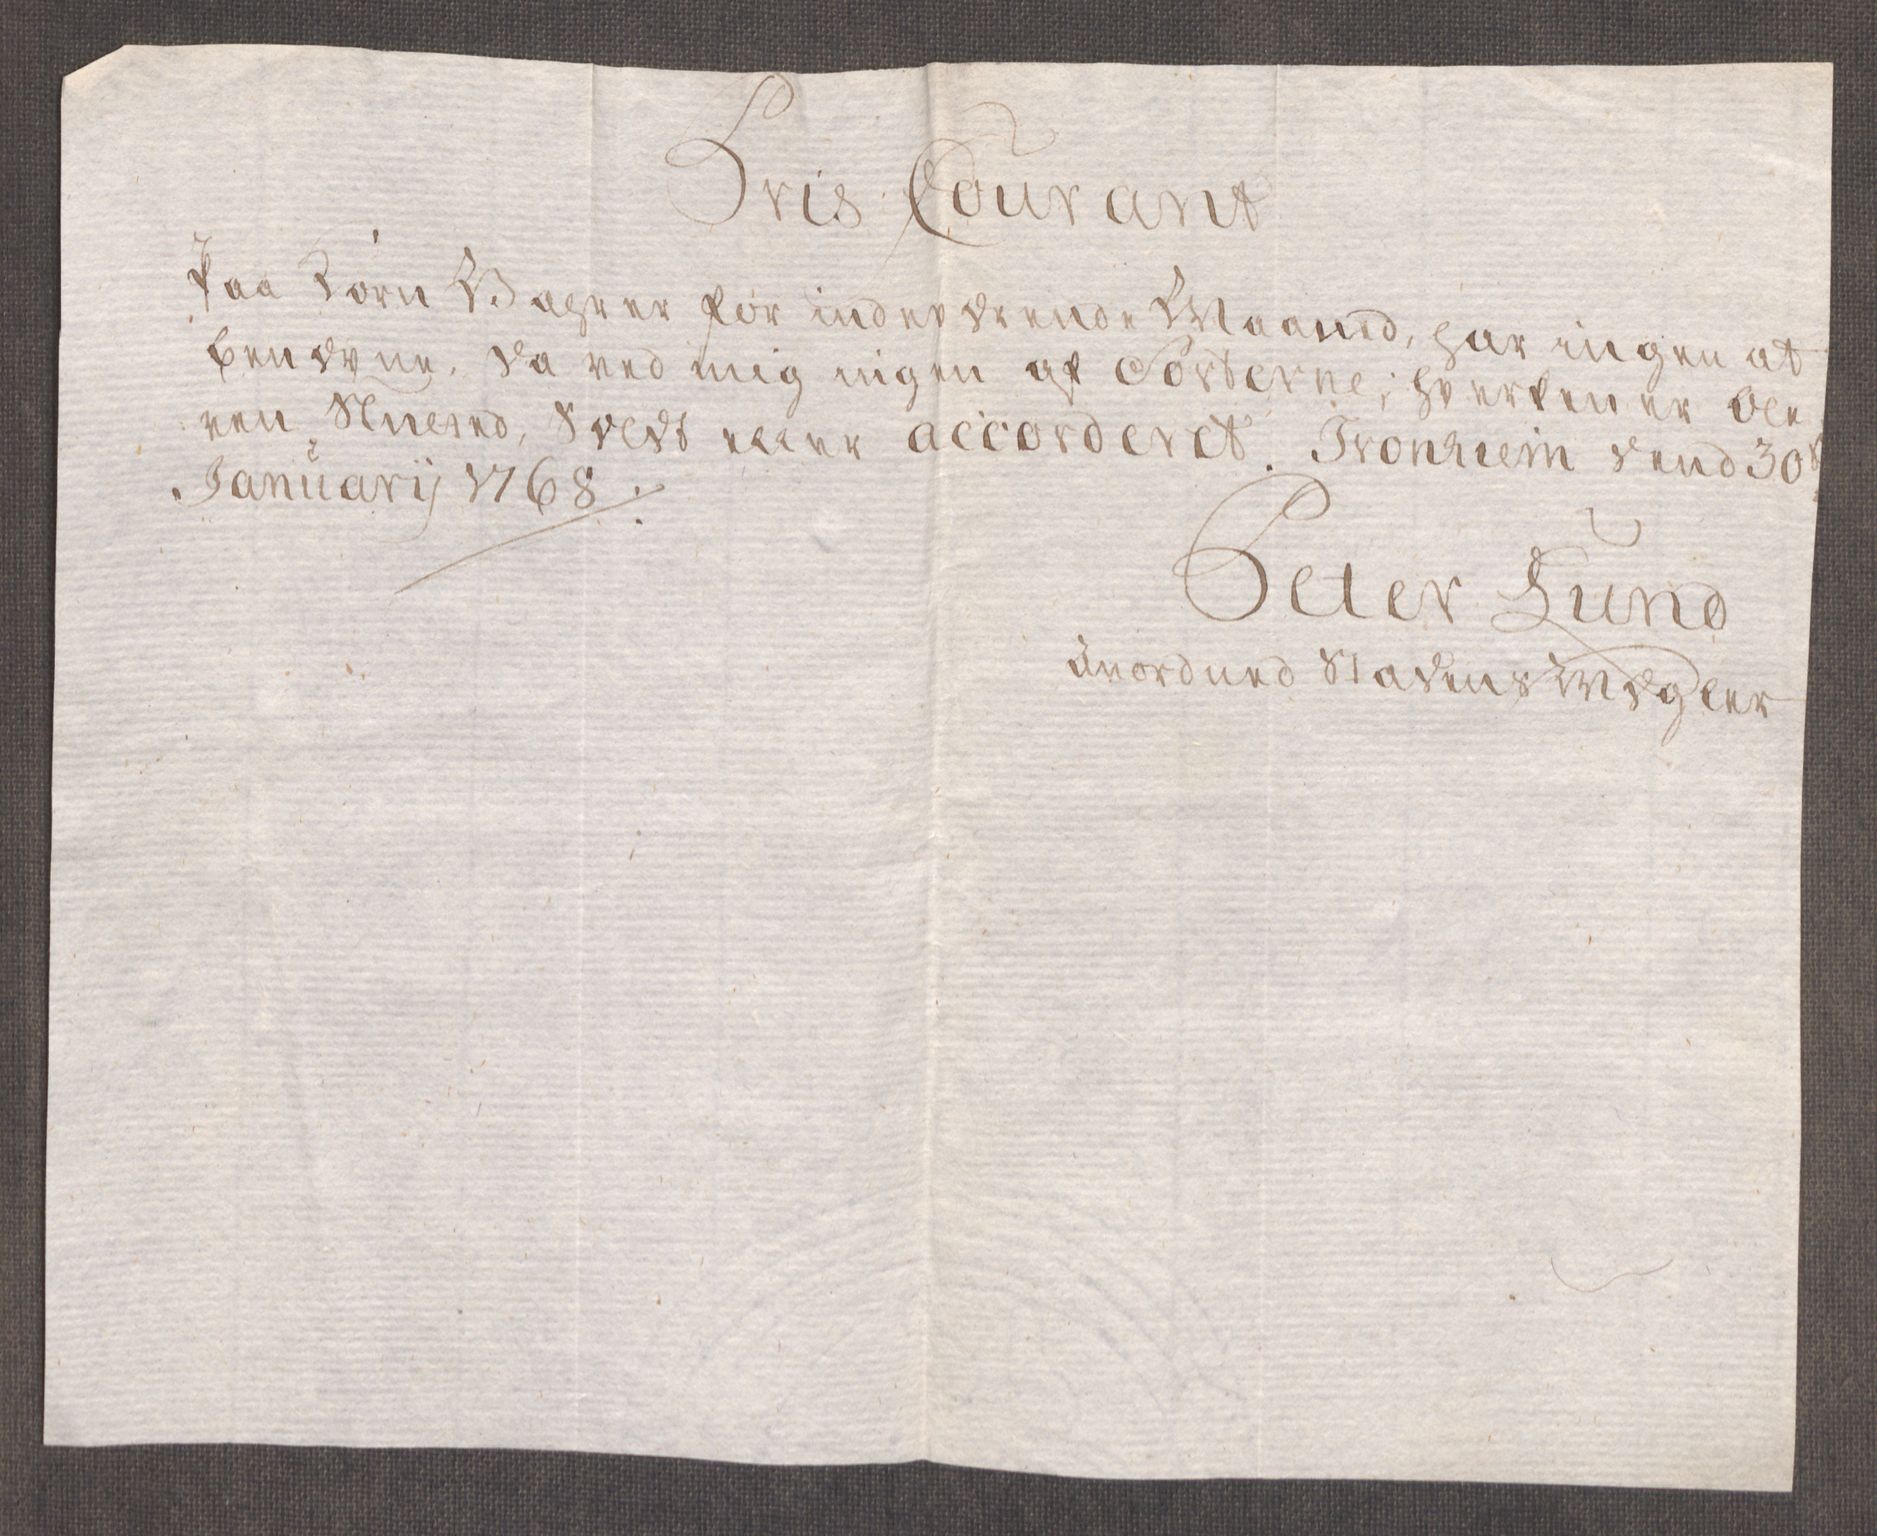 Pris Courant
Paa Korn Wahrer for indeværende Maaned, har ingen at
benævne, da ved mig ingen af Sorterne, hverken er ble-
ven Sluted, Solgt eller accorderet. Tronhiem dend 30t
Januarij 1768
Peter Lund
anordned Stadens Mægler